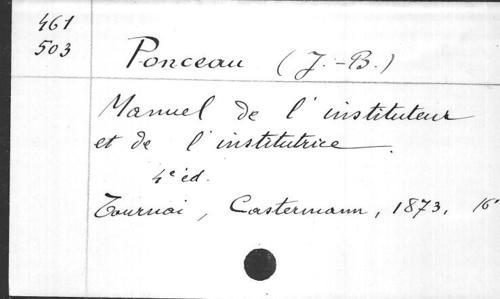 461
503
Ponceau (J.-B.)
Manuel de l'instituteur
et de l'institutrice.
4e éd.
Tournai, Castermann, 1873, 16°